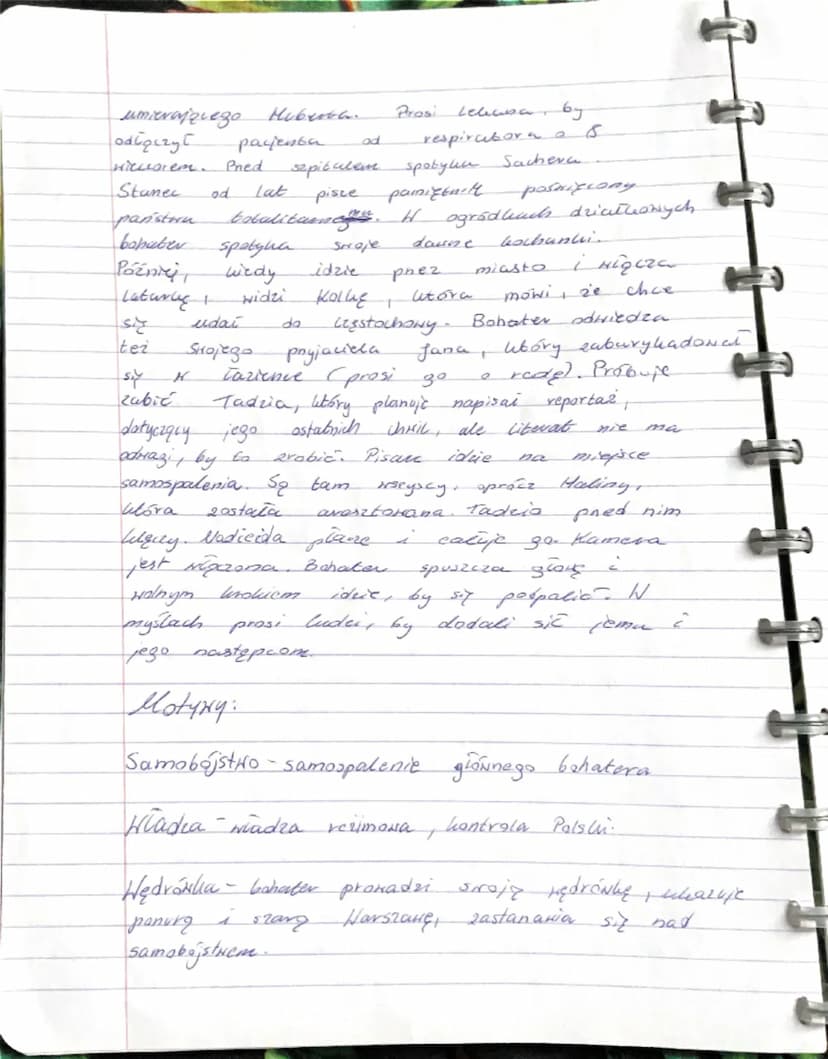 umierającego Huberta. Prosi lekarza, by
odłączyć pacjenta od respiratora o 8
wieczorem. Przed szpitalem spotyka Sachera.
Starzec od lat pisze pamiętnik poświęcony
państwu totalitarnemu. W ogródkach działkowych
bohater spotyka swoje dawne kochanki.
Później, kiedy idzie przez miasto i włącza
latarkę, widzi Kolkę, która mówi, że chce
się udać do Częstochowy. Bohater odwiedza
też swojego przyjaciela Jana, który zabarykadował
się w łazience (prosi go o radę). Próbuje
zabić Tadzia, który planuje napisać reportaż,
dotyczący jego ostatnich chwil, ale literat nie ma
odwagi, by to zrobić. Pisarz idzie na miejsce
samospalenia. Są tam wszyscy, oprócz Haliny,
która została aresztowana. Tadzio przed nim
klęczy. Nadieżda płacze i całuje go. Kamera
jest włączona. Bohater spuszcza głowę i
wolnym krokiem idzie, by się podpalić. W
myślach prosi ludzi, by dodali sił jemu i
jego następcom.
Motywy:
Samobójstwo - samospalenie głównego bohatera
Władza - władza reżimowa, kontrola Polski.
Wędrówka - bohater prowadzi swoją wędrówkę, ukazuje
ponurą i szarą Warszawę, zastanawia się nad
samobójstwem.